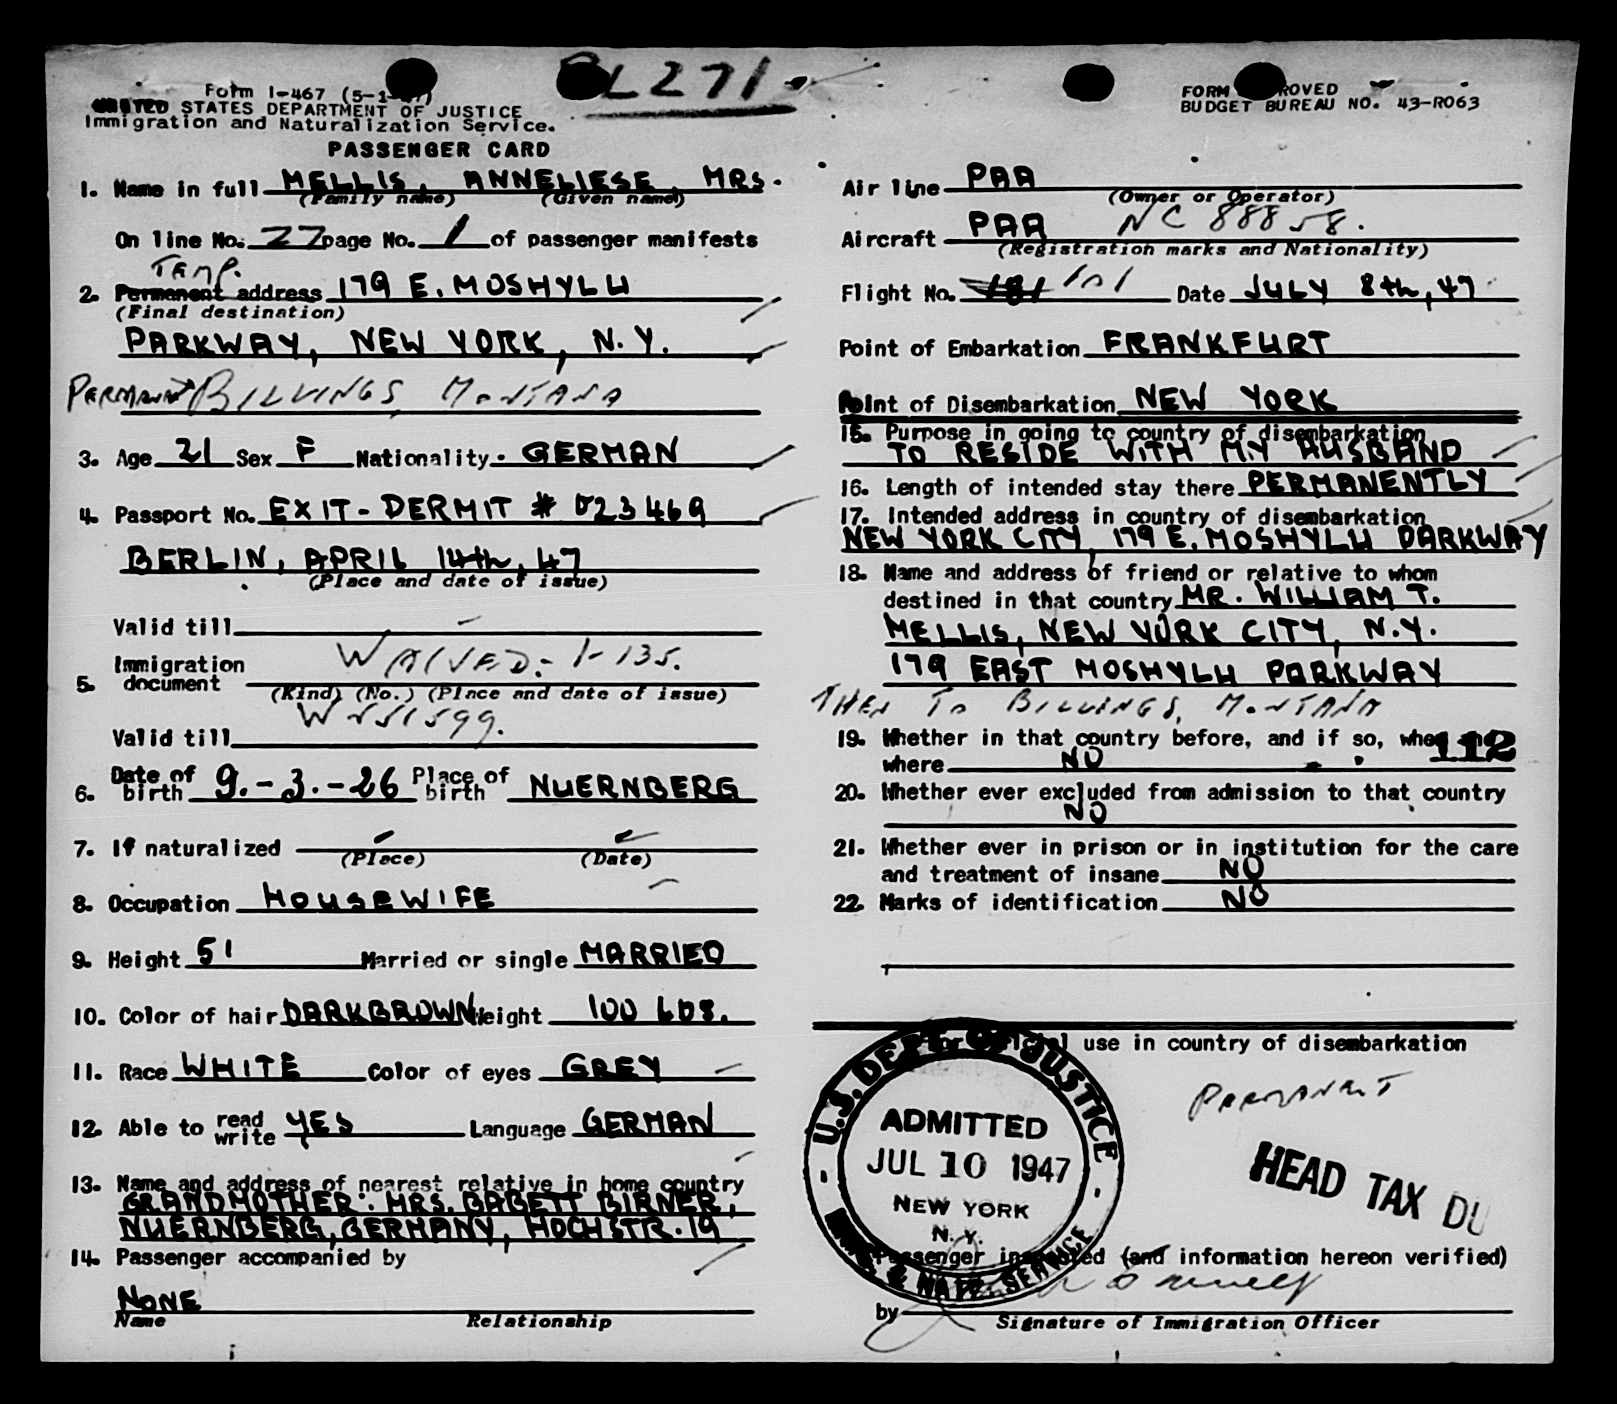 L271
Form I-467 (5-1-47)
UNITED STATES DEPARTMENT OF JUSTICE
Immigration and Naturalization Service.
PASSENGER CARD
1. Name in full MELLIS, ANNELIESE, MRS.
(Family name) (Given name)
On line No. 27 page No. 1 of passenger manifests
TEMP.
2. Permanent address 179 E. MOSHYLU
(Final destination)
PARKWAY, NEW YORK, N.Y.
PERMANENT BILLINGS, MONTANA
3. Age 21 Sex F Nationality. GERMAN
4. Passport No. EXIT-PERMIT # 023469
BERLIN, APRIL 14th, 47
(Place and date of issue)
Valid till
5. Immigration document WAIVED - I-135.
(Kind) (No.) (Place and date of issue)
Valid till
6. Date of birth 9.-3.-26 Place of birth NUERNBERG
7. If naturalized
(Place) (Date)
8. Occupation HOUSEWIFE
9. Height 5' Married or single MARRIED
10. Color of hair DARKBROWN Weight 100 LBS.
11. Race WHITE Color of eyes GREY
12. Able to read write YES Language GERMAN
13. Name and address of nearest relative in home country
GRANDMOTHER: MRS. BABETT BIRNER,
NUERNBERG, GERMANY, HOCHSTR. 19
14. Passenger accompanied by
NONE
Name Relationship
FORM APPROVED
BUDGET BUREAU NO. 43-R063
Air line PAA
(Owner or Operator)
Aircraft PAA NC 88858.
(Registration marks and Nationality)
Flight No. 181 101 Date JULY 8th, 47
Point of Embarkation FRANKFURT
Point of Disembarkation NEW YORK
15. Purpose in going to country of disembarkation
TO RESIDE WITH MY HUSBAND
16. Length of intended stay there PERMANENTLY
17. Intended address in country of disembarkation
NEW YORK CITY, 179 E. MOSHYLU PARKWAY
18. Name and address of friend or relative to whom
destined in that country MR. WILLIAM T.
MELLIS, NEW YORK CITY, N.Y.
179 EAST MOSHYLU PARKWAY
THEN TO BILLINGS, MONTANA
19. Whether in that country before, and if so, when and
where NO 112
20. Whether ever excluded from admission to that country
NO
21. Whether ever in prison or in institution for the care
and treatment of insane NO
22. Marks of identification NO
For official use in country of disembarkation
PERMANENT
U.S. DEPT. OF JUSTICE
ADMITTED
JUL 10 1947
NEW YORK
N.Y.
IMMIG. & NATZ. SERVICE
HEAD TAX DU
Passenger inspected (and information hereon verified)
by
Signature of Immigration Officer